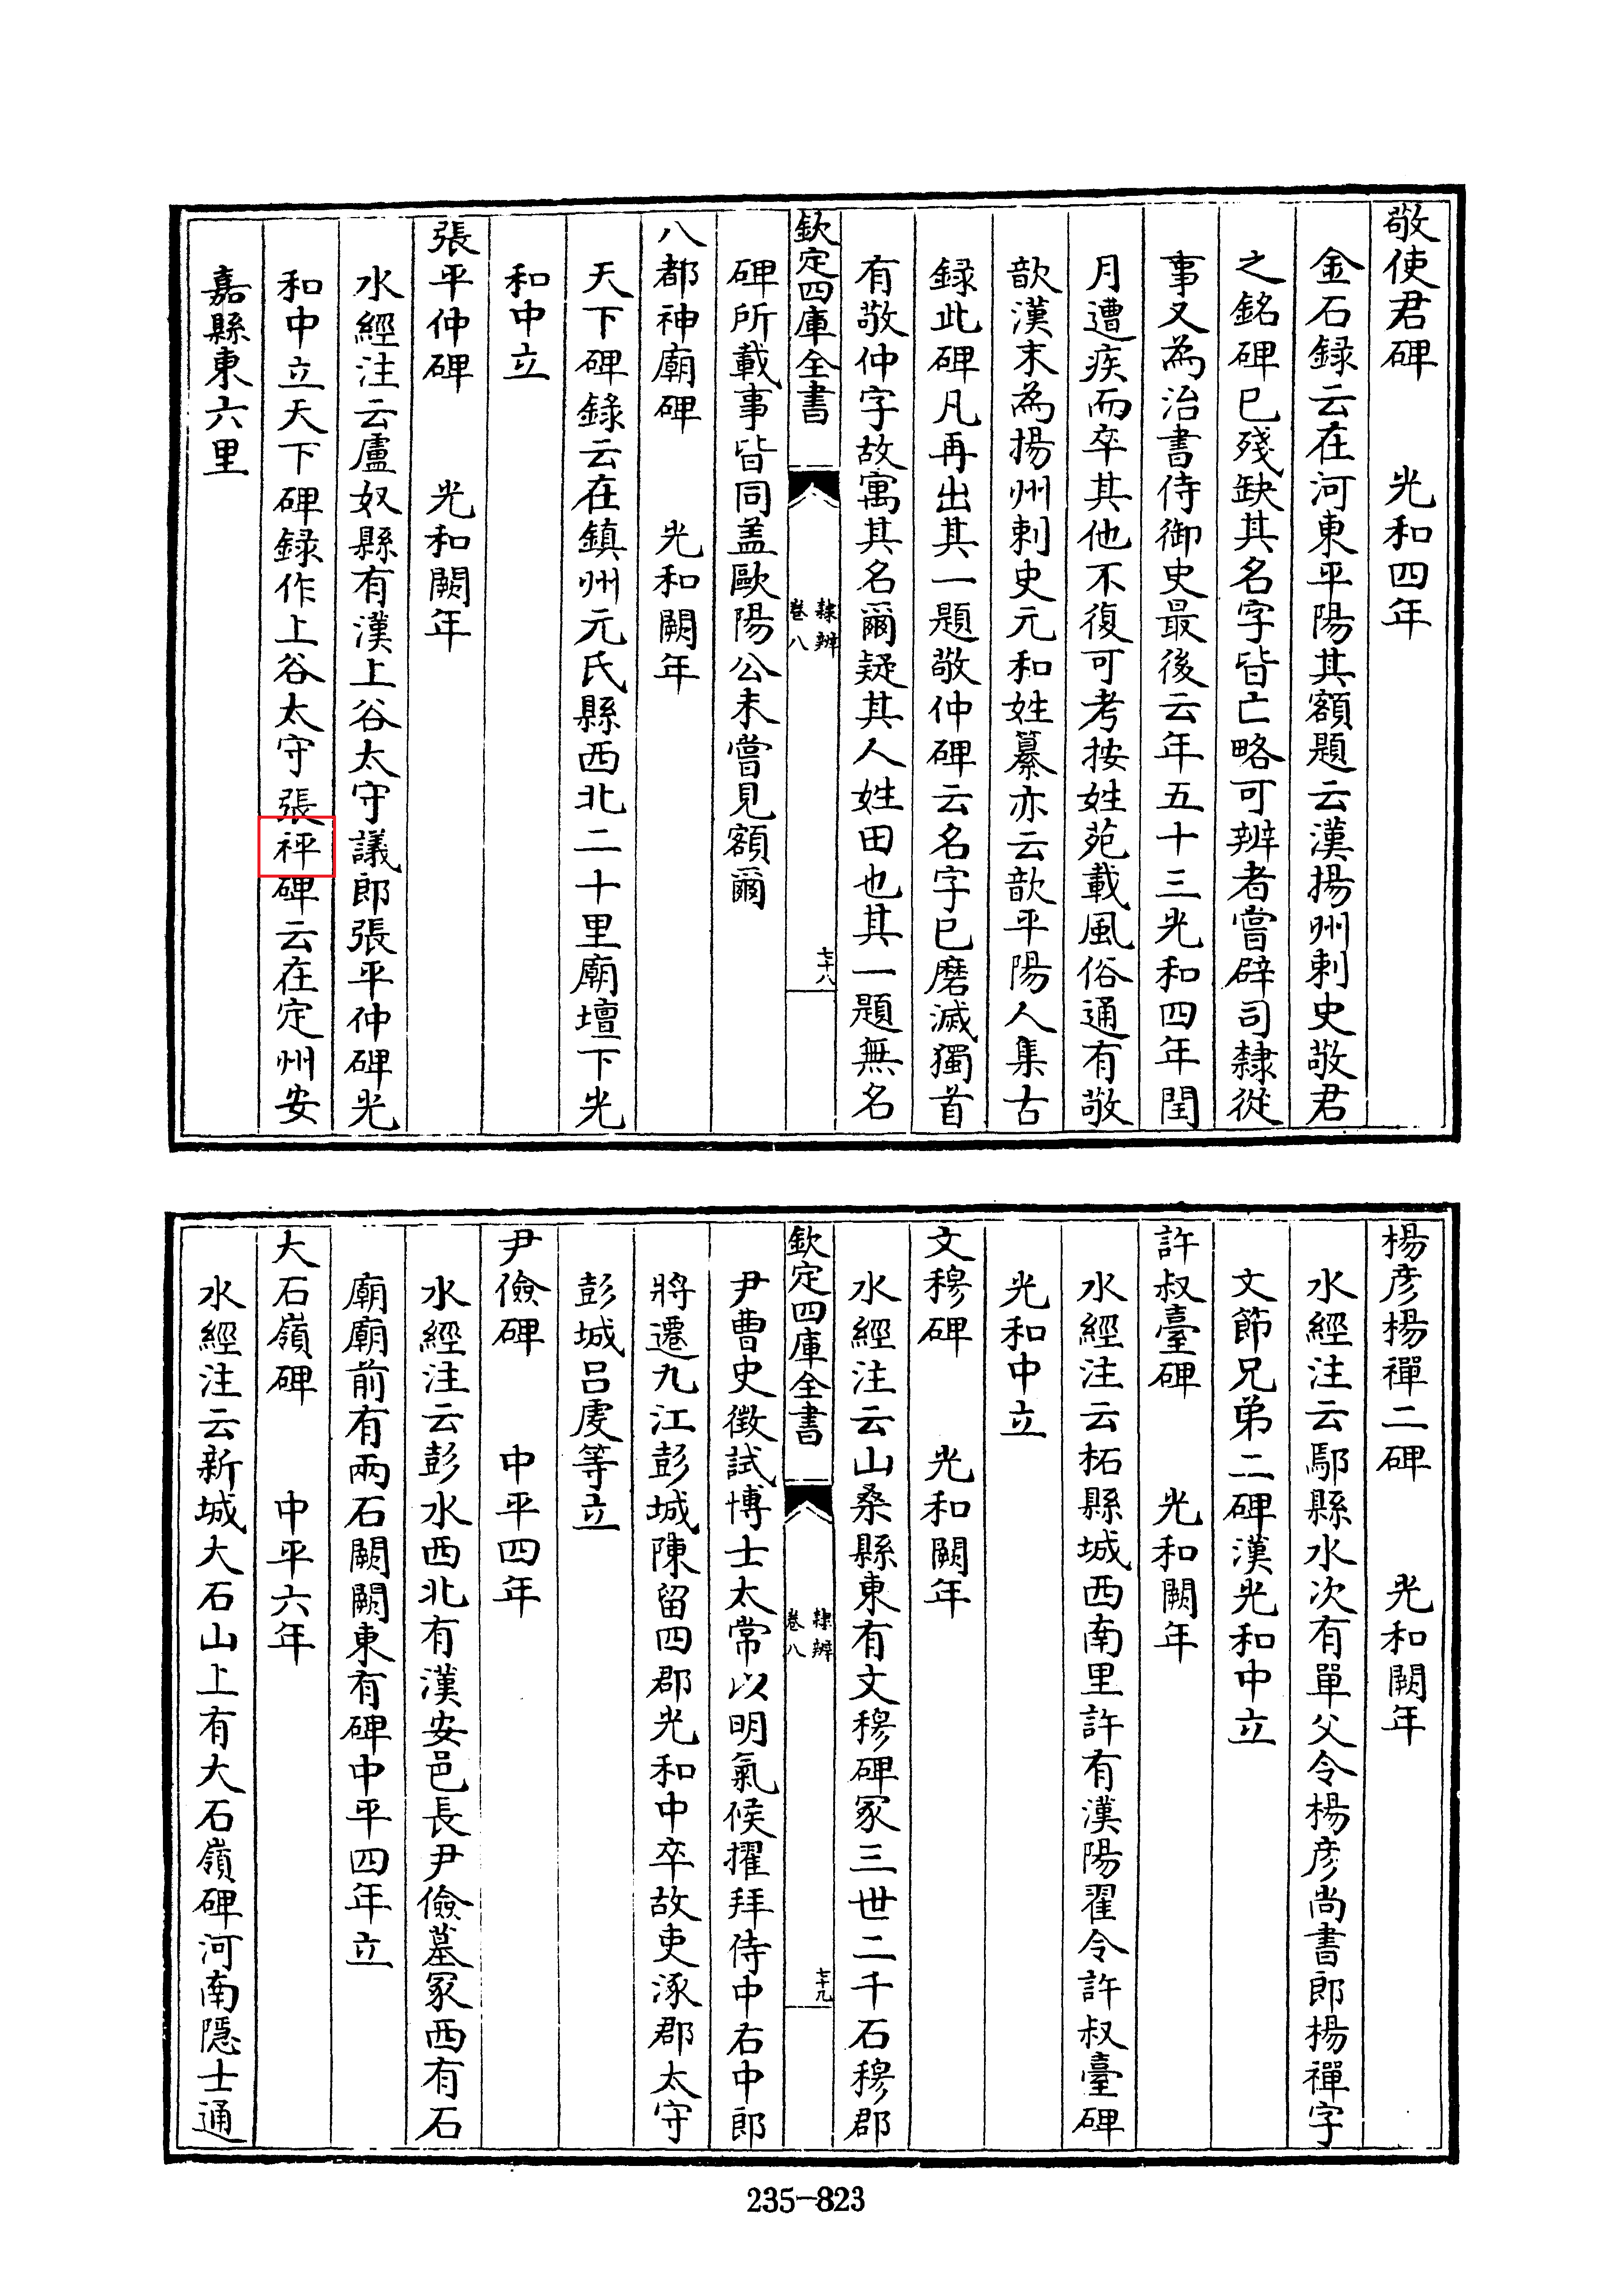 敬使君碑　光和四年
金石録云在河東平陽其額題云漢揚州刺史敬君
之銘碑已殘缺其名字皆亡略可辨者嘗辟司隸從
事又為治書侍御史最後云年五十三光和四年閏
月遭疾而卒其他不復可考按姓苑載風俗通有敬
歆漢末為揚州刺史元和姓纂亦云歆平陽人集古
録此碑凡再出其一題敬仲碑云名字已磨滅獨首
有敬仲字故寓其名爾疑其人姓田也其一題無名
欽定四庫全書
隸辨
卷八
七十八
碑所載事皆同盖歐陽公未嘗見額爾
八都神廟碑　光和闕年
天下碑錄云在鎮州元氏縣西北二十里廟壇下光
和中立
張平仲碑　光和闕年
水經注云盧奴縣有漢上谷太守議郎張平仲碑光
和中立天下碑録作上谷太守張秤碑云在定州安
嘉縣東六里
楊彦楊禪二碑　光和闕年
水經注云鄢縣水次有單父令楊彦尚書郎楊禪字
文節兄弟二碑漢光和中立
許叔臺碑　光和闕年
水經注云柘縣城西南里許有漢陽翟令許叔臺碑
光和中立
文穆碑　光和闕年
水經注云山桑縣東有文穆碑冢三世二千石穆郡
欽定四庫全書
隸辨
卷八
七十九
尹曹史徴試博士太常以明氣候擢拜侍中右中郎
將遷九江彭城陳留四郡光和中卒故吏涿郡太守
彭城吕虔等立
尹儉碑　中平四年
水經注云彭水西北有漢安邑長尹儉墓冢西有石
廟廟前有兩石闕闕東有碑中平四年立
大石嶺碑　中平六年
水經注云新城大石山上有大石嶺碑河南隱士通
235-823